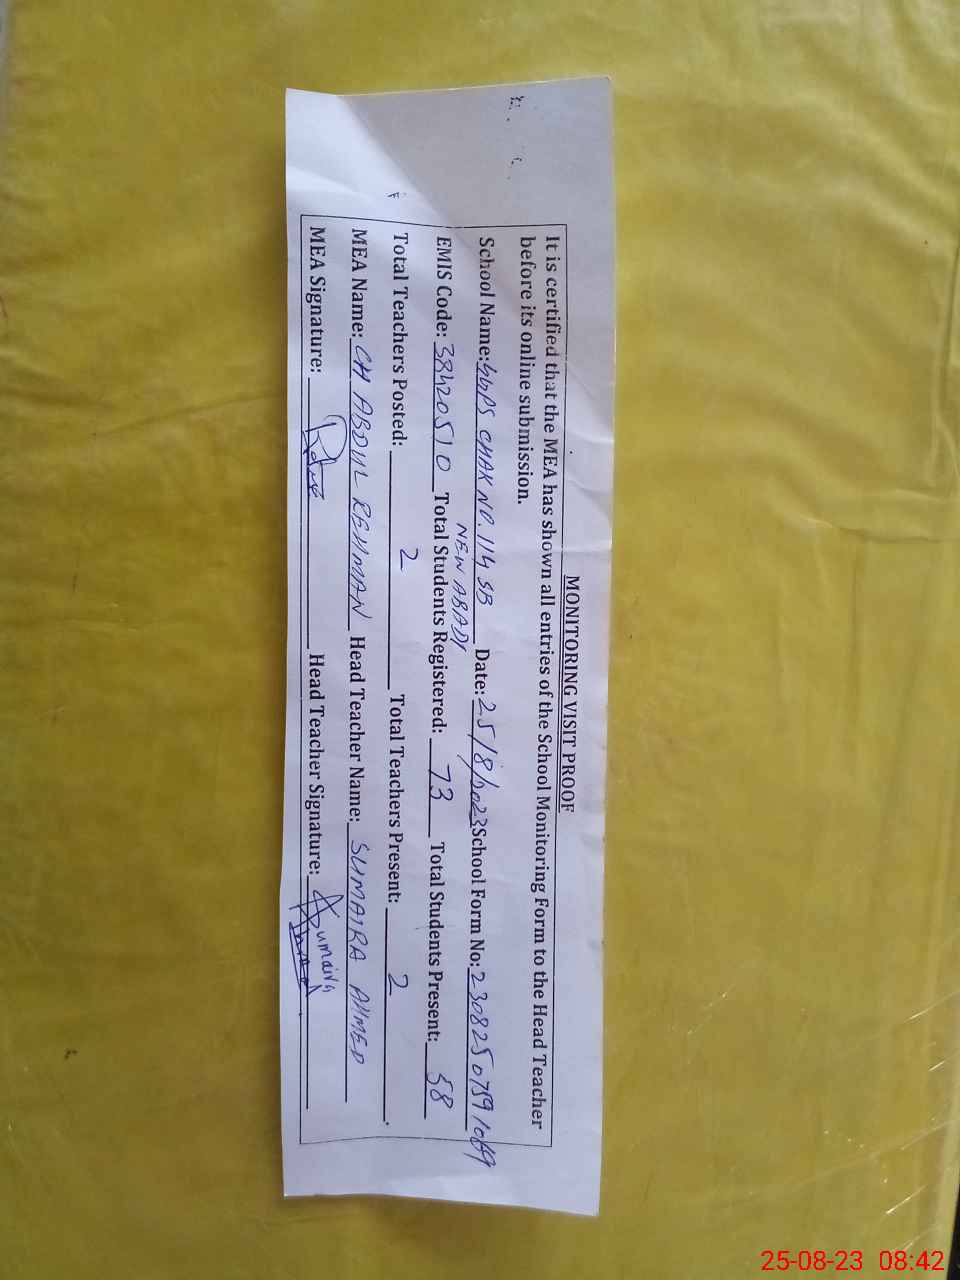 MONITORING VISIT PROOF
It is certified that the MEA has shown all entries of the School Monitoring Form to the Head Teacher
before its online submission.
School Name: GGPS CHAK NO. 114 SB Date: 25/8/2023 School Form No: 2308250759
NEW ABADI
EMIS Code: 38420510 Total Students Registered: 73 Total Students Present: 58
Total Teachers Posted: 2 Total Teachers Present: 2
MEA Name: CH ABDUL REHMAN Head Teacher Name: SUMAIRA AHMED
MEA Signature: Head Teacher Signature: Sumaira
25-08-23 08:42